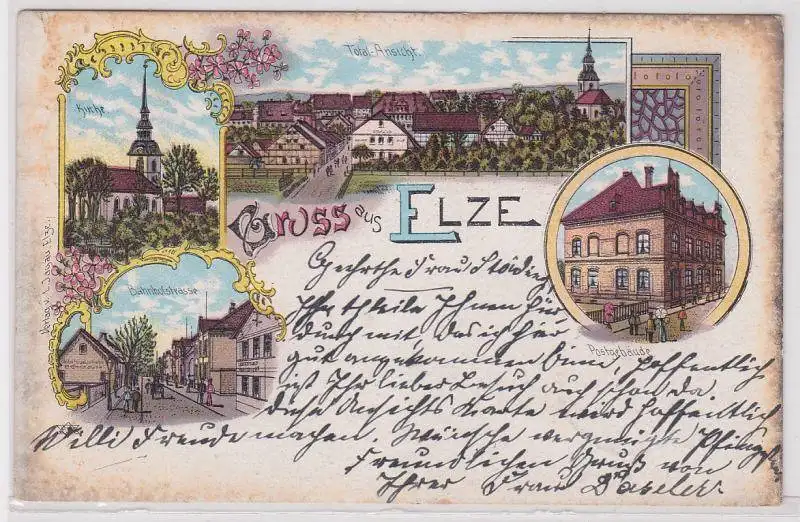 Total-Ansicht.
Kirche
Gruss aus Elze
Bahnhofstrasse
Postgebäude
Geehrthe Frau
Ihr theile Ihnen hür
durch mit, das ich hür
gut angekommen binn hoffentlich
ist Ihr lieber Besuch auch schon da.
diese Ansichts Karte wird hoffentlich
Willi Freude machen. Wünsche vergnügte
Freundlichen Gruß von
Ihrer Frau